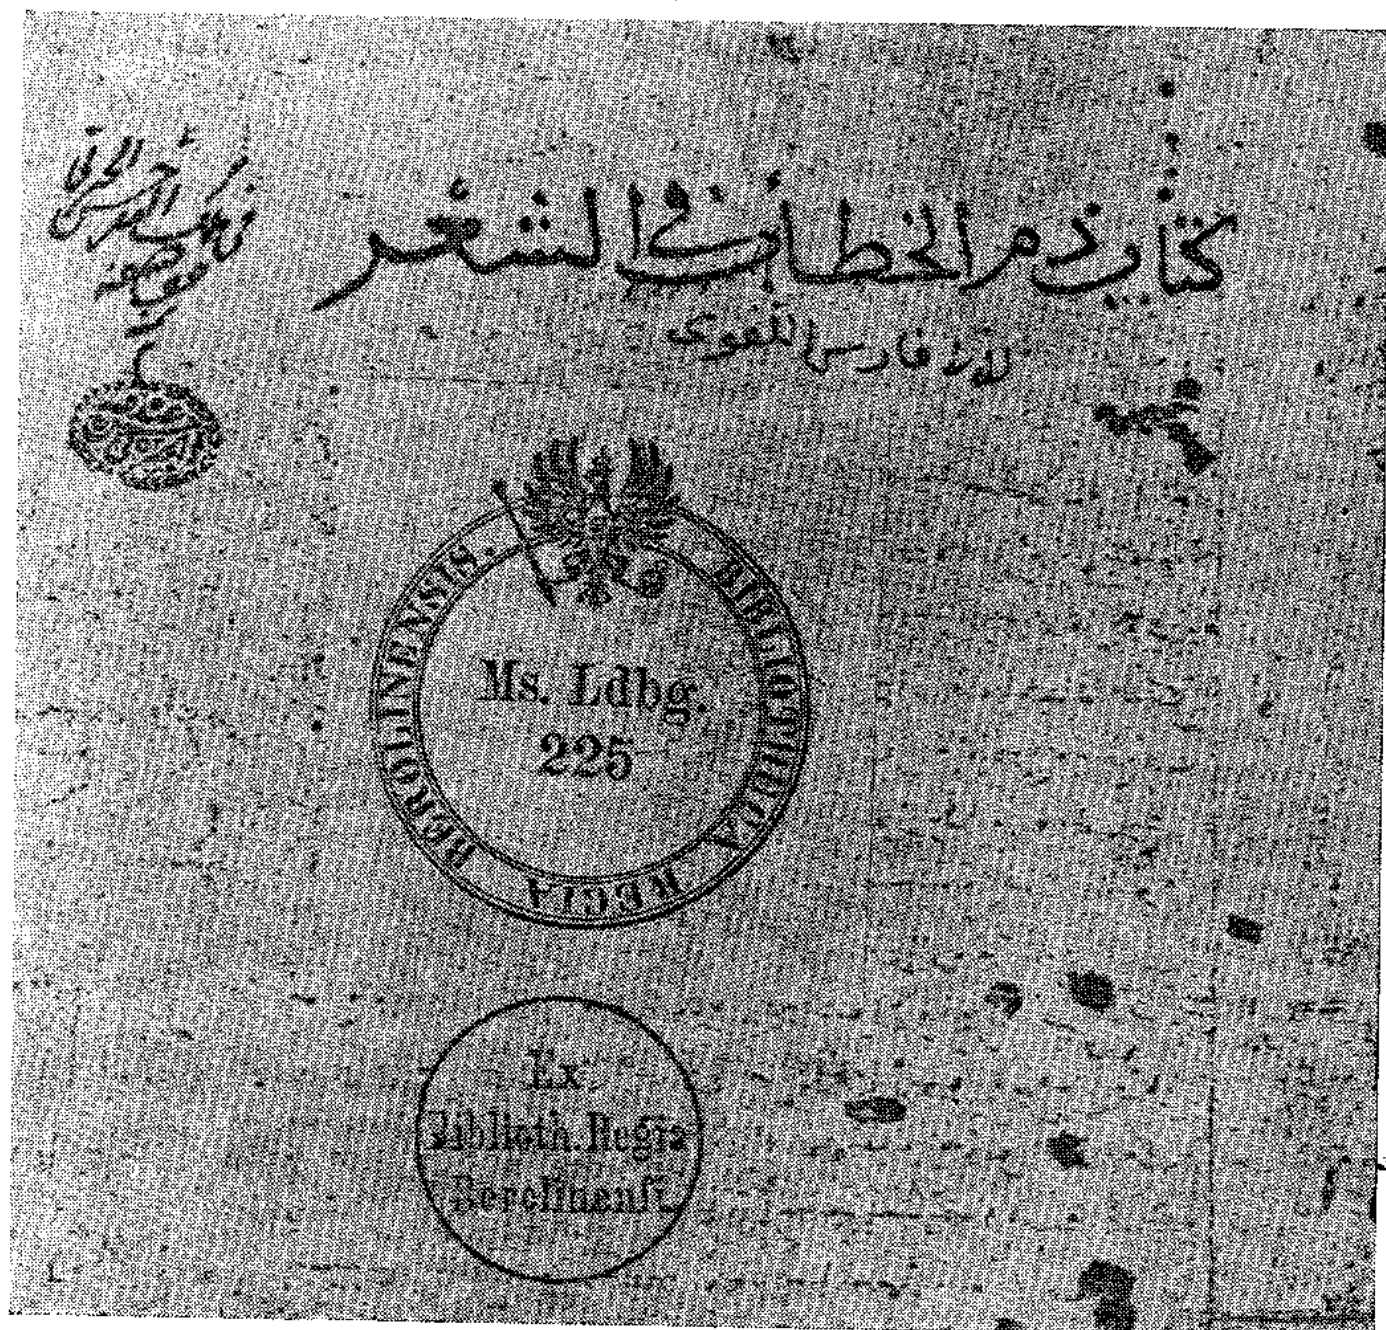 كتاب ذم الخطأ في الشعر
لابن فارس اللغوي
BIBLIOTHECA REGIA BEROLINENSIS.
Ms. Ldbg.
225
Ex
Biblioth. Regia
Berolinensi.